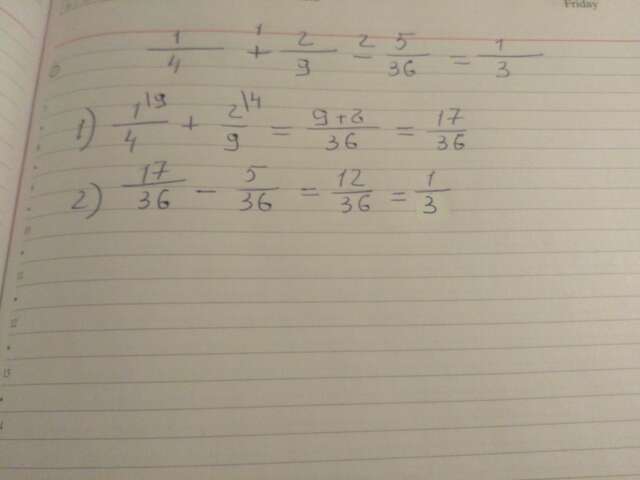 Friday
1/4 +¹ 2/9 -² 5/36 = 1/3
1) 1\9/4 + 2\4/9 = 9+8/36 = 17/36
2) 17/36 - 5/36 = 12/36 = 1/3